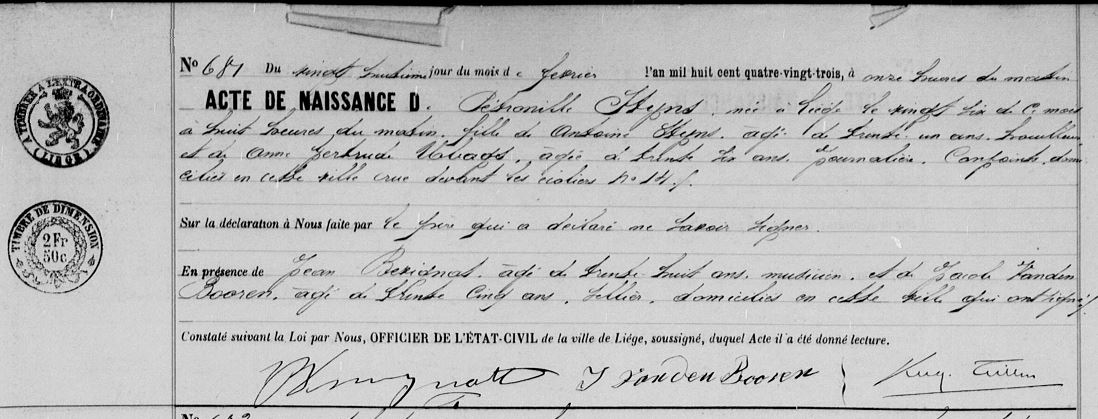 A PÉTITIONER A L'EXTRAORDINAIRE
(LIÉGE)
TIMBRE DE DIMENSION
2 Fr
50 c.
No 681 Du vingt huitième jour du mois de fevrier l'an mil huit cent quatre-vingt-trois, à onze heures du matin
ACTE DE NAISSANCE D. Pétronille Heyns, née à Liége le vingt six de ce mois
à huit heures du matin, fille de Antoine Heyns, agé de trente un ans, houilleur
et de Anne Gertrude agée de trente six ans, Journalière, Conjoints, domi
ciliés en cette ville rue devant les écoliers no 14 /.
Sur la déclaration à Nous faite par le père qui a déclaré ne savoir signer.
En présence de Jean agé de trente huit ans, musicien, et de Jacob Vanden
Booren, agé de trente cinq ans, sellier, domiciliés en cette ville qui ont signé /.
Constaté suivant la Loi par Nous, OFFICIER DE L'ÉTAT-CIVIL de la ville de Liége, soussigné, duquel Acte il a été donné lecture.
J VandenBooren